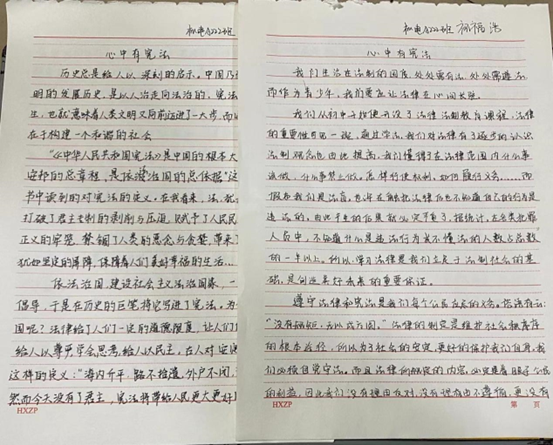 机电A222班
心中有宪法
历史总是给人以深刻的启示。中国乃
明的发展历史,是以人治走向法治的,宪法
生,也就意味着人类文明又向前迈进了一大步,而
在于构建一个和谐的社会
《中华人民共和国宪法》是中国的根本大
安邦的总章程,是依法治国的总依据"这
书中读到的对宪法的定义。在我看来,法,犹
打破了君主专制的剥削与压迫,赋予了人民民
正义的牢笼,禁锢了人类的恶念与贪婪,带来
犹如坚定的屏障,保障着人们美好幸福的生活
依法治国,建设社会主义法治国家,一
倡导,于是在历史的巨笔将它写进了宪法。为
国呢?法律给了人们一定的道德限度,让人们
给人以尊严学会思考,给人以民主,在人对
这样的定义:"海内升平,路不拾遗,外户不闭,
然而今天没有了君主,宪法将带给人民更大更好
HXZP
机电A222班
心中有宪法
我们生活在法制的国度,处处需有法,处处需遵法
而作为青少年,我们更应让法律在心间长驻。
我们从初中开始便开设了法律法规教育课程,法律
的重要性可见一斑,通过学法,我们对法律有了逐步的认识
法制观念也由此提高,我们懂得了在法律范围内什么事
该做,什么事禁止做,怎样行使权利,如何履行义务……而
假如我们是法盲,也许在触犯法律后也不知道自己的行为是
违法的,由此产生的后果就必定严重了。据统计,在各类犯罪
人员中,不知道什么是违法行为或不懂法的人数占总数
的一半以上。所以,学习法律是我们立足于法制社会的基
础,是创造美好未来的重要保证。
遵守法律和宪法是我们每个公民应尽的义务。俗语有云:
"没有规矩,无以成方圆。"法律的制定是维护社会秩序
的根本途径,所以为了社会的安定,更好的保护我们自身,我
们必须自觉守法。而且法律所规定的内容,必定是着眼于公民
的利益,因此我们没有理由反对,没有理由不遵循,更没有
HXZP
第 页